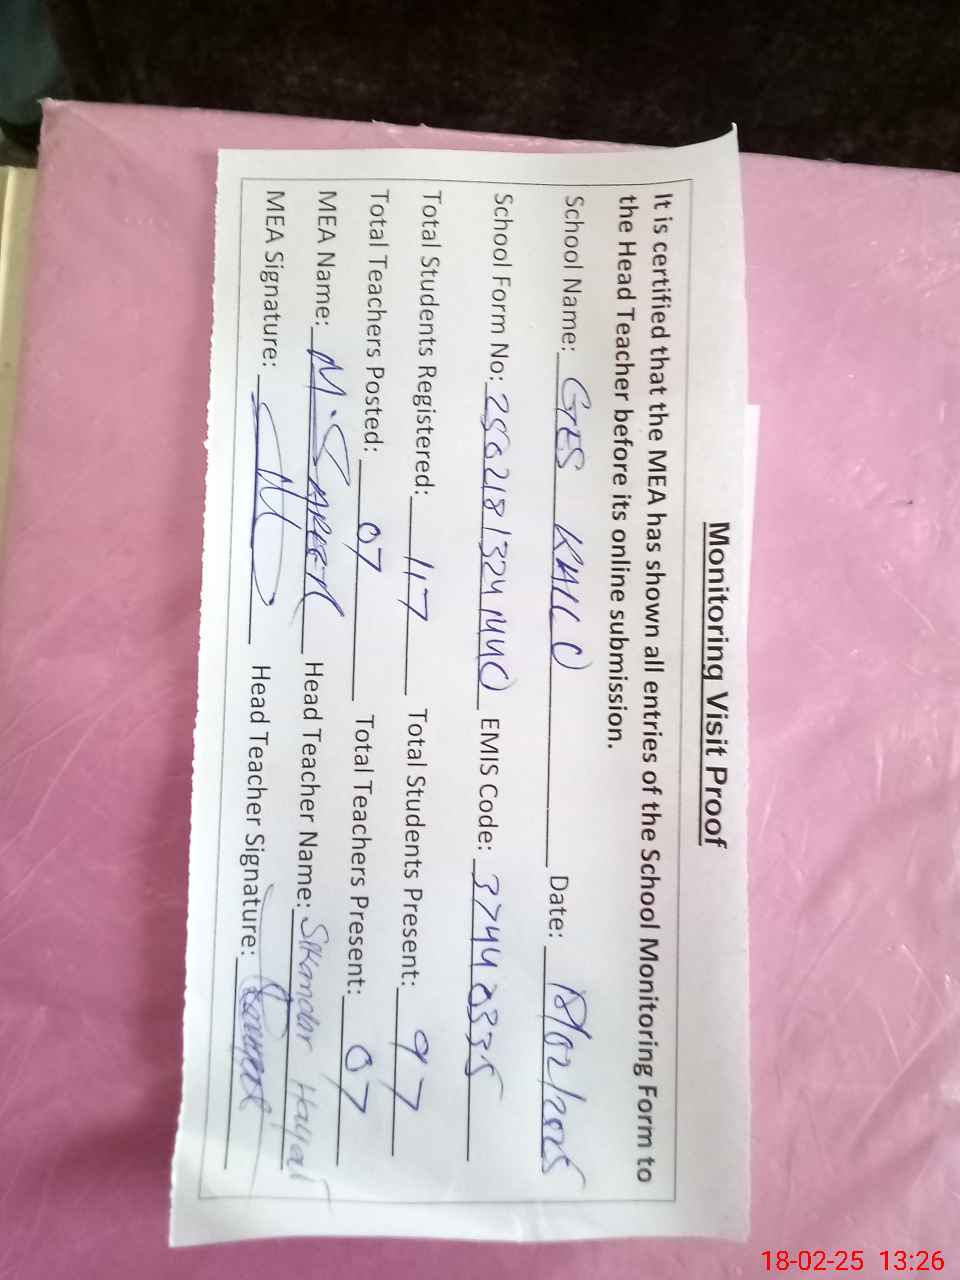 Monitoring Visit Proof
It is certified that the MEA has shown all entries of the School Monitoring Form to
the Head Teacher before its online submission.
School Name: GES KALLO Date: 18/02/2025
School Form No: 25021813241440 EMIS Code: 37440335
Total Students Registered: 117 Total Students Present: 97
Total Teachers Posted: 07 Total Teachers Present: 07
MEA Name: M. SAPEER Head Teacher Name: Sikandar Hayat
MEA Signature: Head Teacher Signature:
18-02-25 13:26